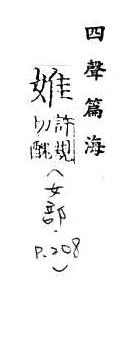 四聲篇海
婎許規切醜(女部.P.208)